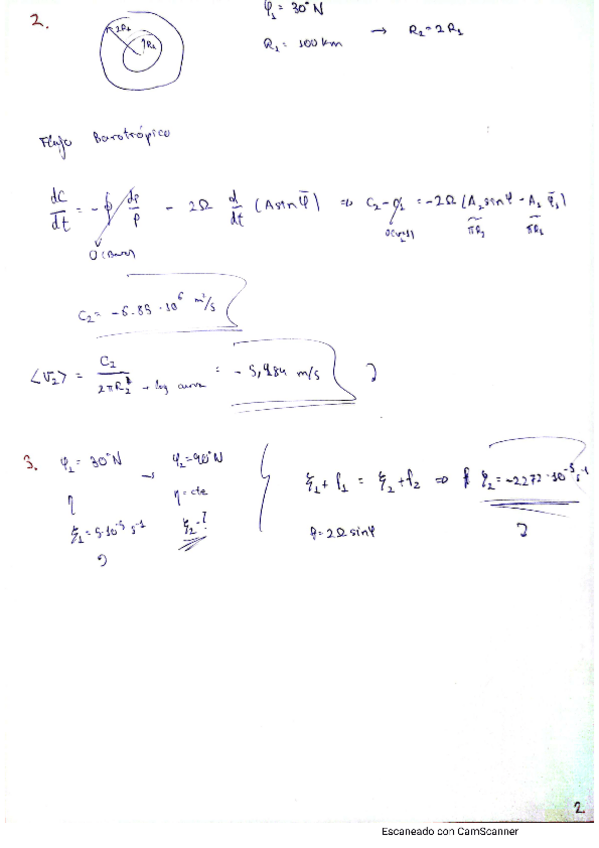 2.
2R₁
R₁
φ₁ = 30°N
R₁ = 100 km → R₂ = 2R₁
Flujo Barotrópico
dC/dt = -∮ dp/ρ - 2Ω d/dt (A sin φ̄) ⇒ C₂ - C₁ = -2Ω (A₂ sin φ - A₁ φ̄₁)
πR₂ πR₁
C₂ = -6.85 · 10⁶ m²/s
<V₂> = C₂ / 2πR₂ → log curva = - 5,484 m/s
3. φ₁ = 30°N → φ₂ = 90°N
η η = cte
ξ₁ = 5·10⁻⁵ s⁻¹ ξ₂ = ?
ξ₁ + f₁ = ξ₂ + f₂ ⇒ ξ₂ = -2272·10⁻⁵ s⁻¹
f = 2Ω sin φ
2.
Escaneado con CamScanner